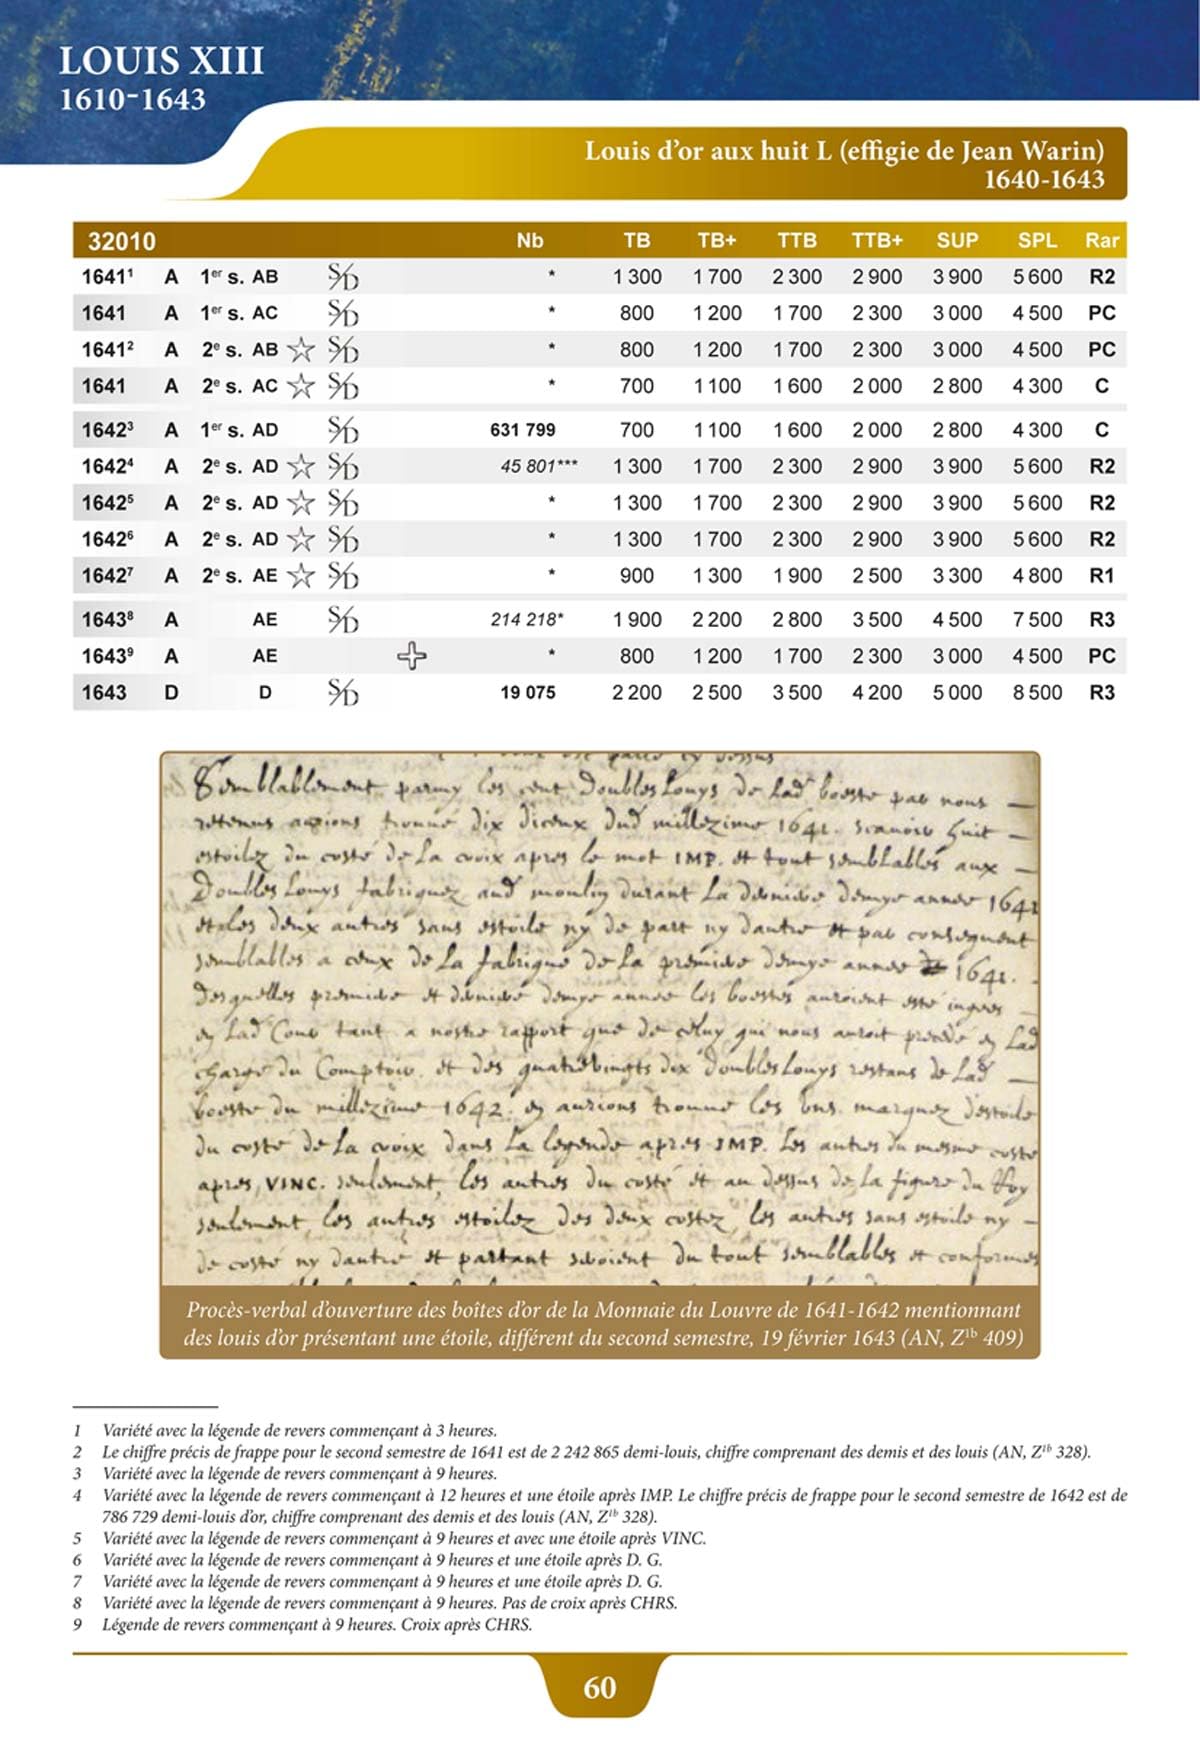 LOUIS XIII
1610-1643
Louis d'or aux huit L (effigie de Jean Warin)
1640-1643
32010 Nb TB TB+ TTB TTB+ SUP SPL Rar
1641¹ A 1er s. AB S/D * 1 300 1 700 2 300 2 900 3 900 5 600 R2
1641 A 1er s. AC S/D * 800 1 200 1 700 2 300 3 000 4 500 PC
1641² A 2e s. AB ☆ S/D * 800 1 200 1 700 2 300 3 000 4 500 PC
1641 A 2e s. AC ☆ S/D * 700 1 100 1 600 2 000 2 800 4 300 C
1642³ A 1er s. AD S/D 631 799 700 1 100 1 600 2 000 2 800 4 300 C
1642⁴ A 2e s. AD ☆ S/D 45 801*** 1 300 1 700 2 300 2 900 3 900 5 600 R2
1642⁵ A 2e s. AD ☆ S/D * 1 300 1 700 2 300 2 900 3 900 5 600 R2
1642⁶ A 2e s. AD ☆ S/D * 1 300 1 700 2 300 2 900 3 900 5 600 R2
1642⁷ A 2e s. AE ☆ S/D * 900 1 300 1 900 2 500 3 300 4 800 R1
1643⁸ A AE S/D 214 218* 1 900 2 200 2 800 3 500 4 500 7 500 R3
1643⁹ A AE * 800 1 200 1 700 2 300 3 000 4 500 PC
1643 D D S/D 19 075 2 200 2 500 3 500 4 200 5 000 8 500 R3
Semblablement parmy les cent Doubles Louys de Lad boeste par nous
retenus aurions trouvé dix diceux dud millezime 1641. scavoir huit
estoilez du costé de La croix apres le mot IMP. et tout semblables aux
Doubles Louys fabriquez aud moulin durant La derniere demye annee 1641
et les deux autres sans estoile ny de part ny dautre et par consequent
semblables a ceux de La fabrique de La premiere demye annee 1641.
Desquelles premiere et derniere demye annee les boestes auroient esté
en Lad Cour tant a nostre rapport que de celuy qui nous auroit precedé en Lad
charge du Comptoir. et des quatrevingts dix Doubles Louys restans de Lad
boeste du millezime 1642. en aurions trouvé les uns marquez d'estoile
du costé de La croix dans La legende apres IMP. les autres du mesme costé
apres VINC. seulement, les autres du costé et au dessus de La figure du Roy
seulement les autres estoilez des deux costez, les autres sans estoile ny
de costé ny dautre et partant seroient du tout semblables et conformes
Procès-verbal d'ouverture des boîtes d'or de la Monnaie du Louvre de 1641-1642 mentionnant
des louis d'or présentant une étoile, différent du second semestre, 19 février 1643 (AN, Z1b 409)
1 Variété avec la légende de revers commençant à 3 heures.
2 Le chiffre précis de frappe pour le second semestre de 1641 est de 2 242 865 demi-louis, chiffre comprenant des demis et des louis (AN, Z1b 328).
3 Variété avec la légende de revers commençant à 9 heures.
4 Variété avec la légende de revers commençant à 12 heures et une étoile après IMP. Le chiffre précis de frappe pour le second semestre de 1642 est de
786 729 demi-louis d'or, chiffre comprenant des demis et des louis (AN, Z1b 328).
5 Variété avec la légende de revers commençant à 9 heures et avec une étoile après VINC.
6 Variété avec la légende de revers commençant à 9 heures et une étoile après D. G.
7 Variété avec la légende de revers commençant à 9 heures et une étoile après D. G.
8 Variété avec la légende de revers commençant à 9 heures. Pas de croix après CHRS.
9 Légende de revers commençant à 9 heures. Croix après CHRS.
60